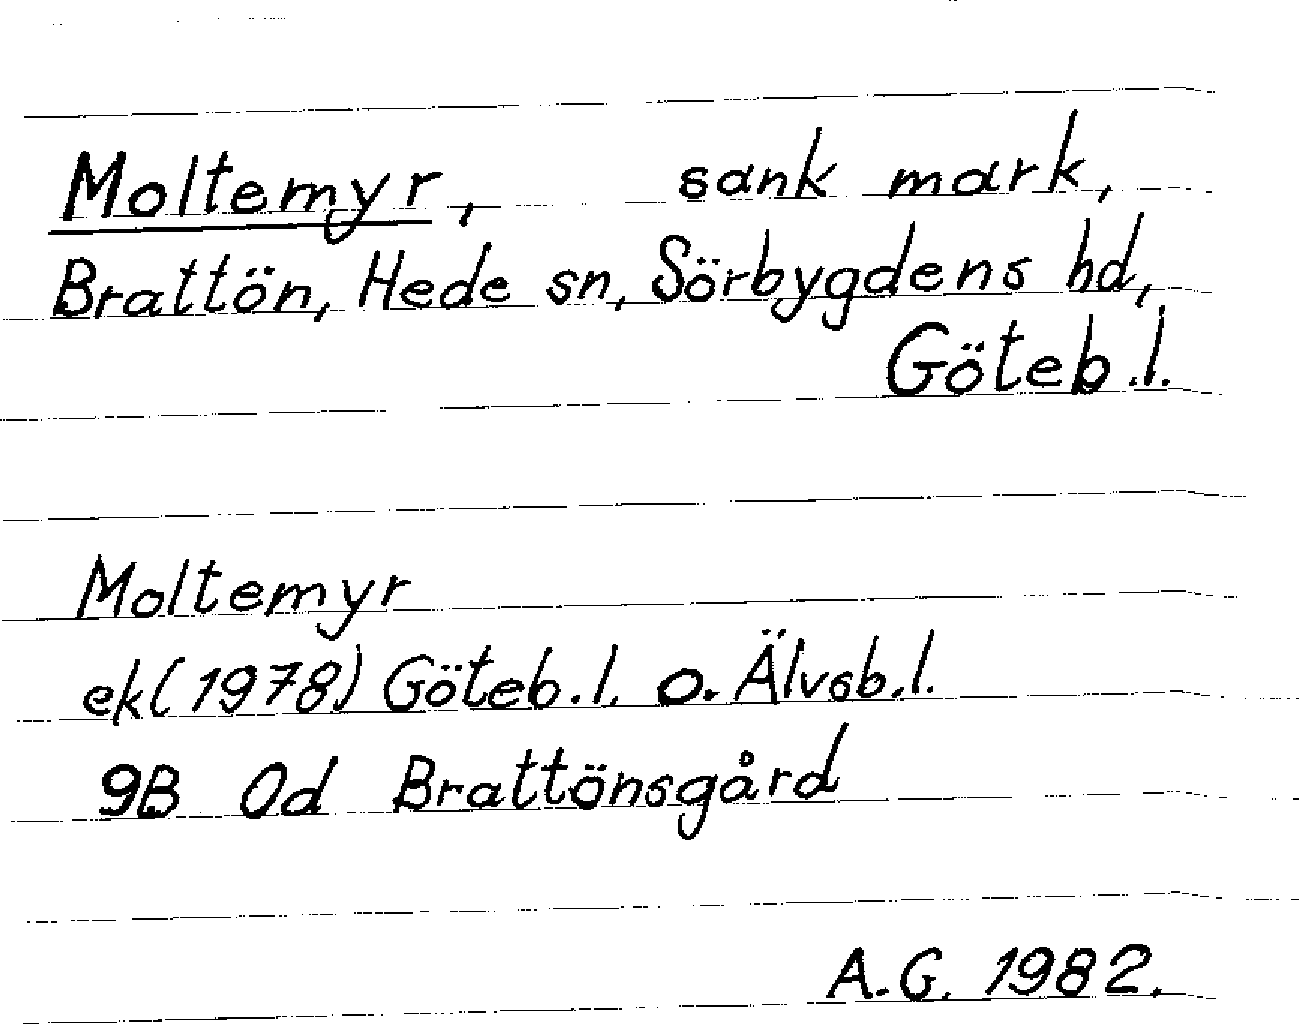 Moltemyr, sank mark,
Brattön, Hede sn, Sörbygdens hd,
Göteb.l.
Moltemyr
ek(1978) Göteb.l. o. Älvsb.l.
9B 0d Brattönsgård
A.G. 1982.